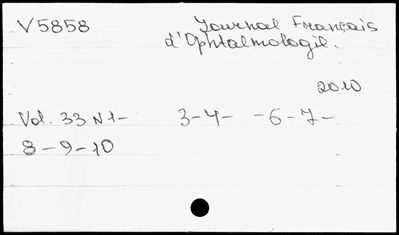 V5858 Journal Français
d'Ophtalmologie.
2010
Vol. 33 N 1- 3-4- -6-7-
8-9-10